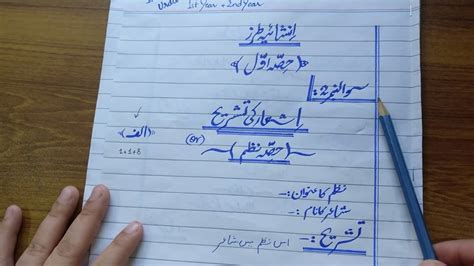 1st Year + 2nd Year
انشائیہ طرز
(حصہ اوّل)
سوالنمبر2:
اشعار کی تشریح
(الف)
(or)
~(حصہ نظم)~
1+1+8
نظم کا عنوان:-
شاعر کا نام:-
تشریح:-
اس نظم میں شاعر